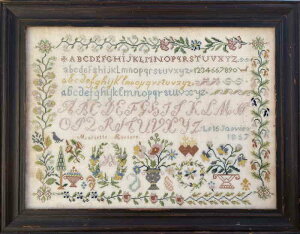 ABCDEFGHIJKLMNOPQRSTUVXYZ
abcdefghijklmnopqrstuvxyz 1234567890
abcdefghijklmnopqrstuvxyz
abcdefghijklmnopqrstuvxyz
ABCDEFGHIJKLMN
OPQRSTUVXYZ Le 16 Janvier
1857